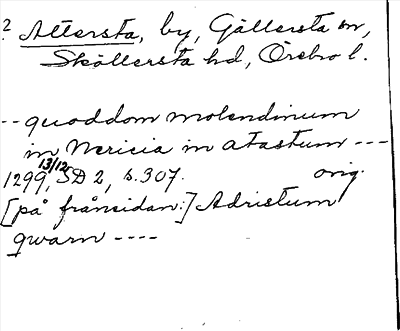 ? Attersta, by, Gällersta sn,
Skällersta hd, Örebro l.
-- quoddom molendinum
in Nericia in atastum ---
1299 13/12, SD 2, s. 307. orig.
[på frånsidan:] Adristum
qwarn ----